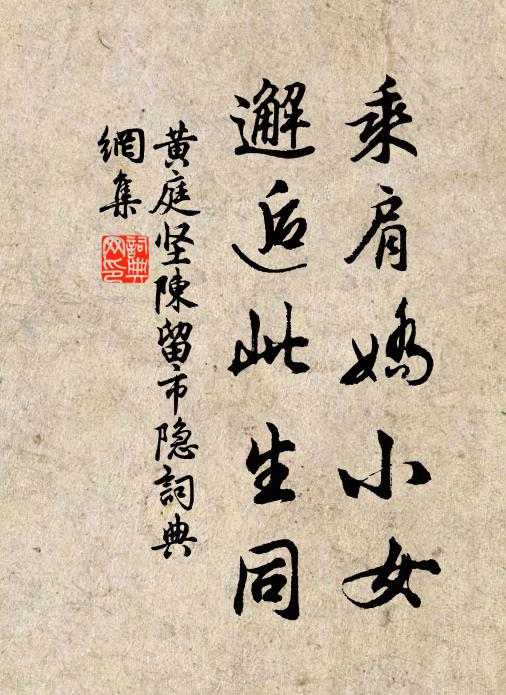 乘肩嬌小女
邂逅此生同
黃庭坚陳留市隐詞典
網集
詞典
网印